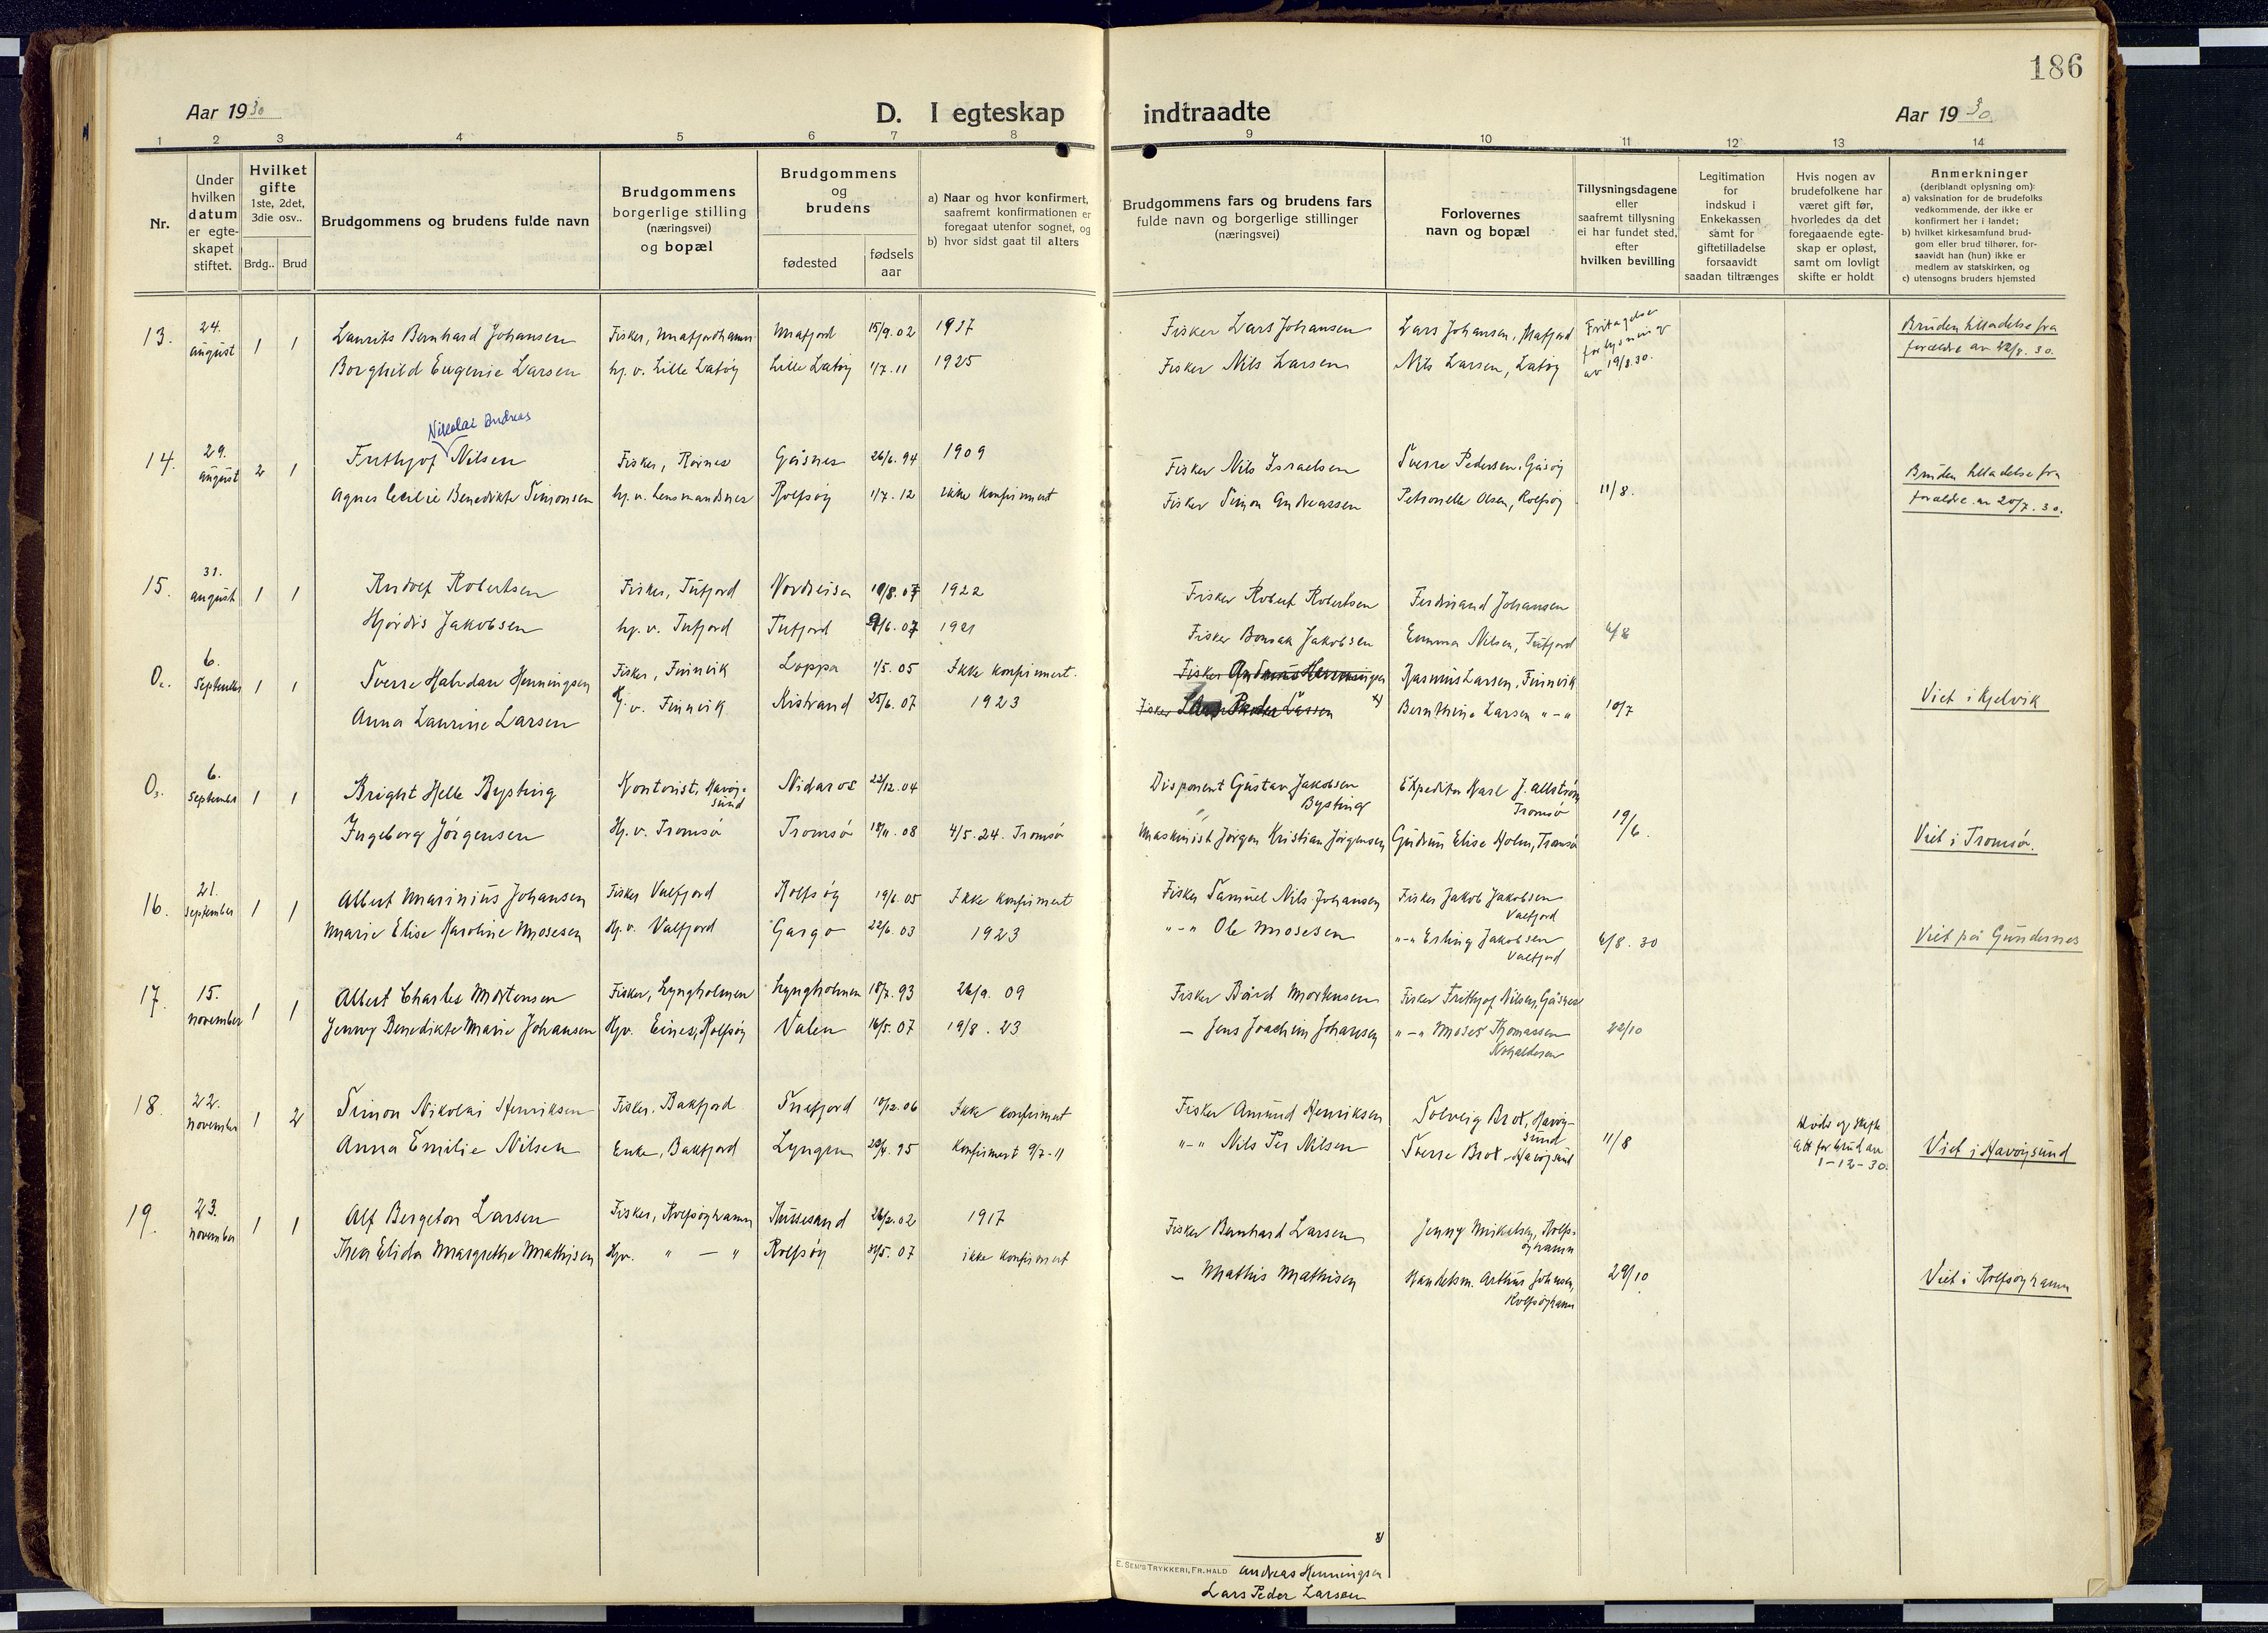 186
Aar 1930 D. I egteskap indtraadte Aar 1930
1 2 3 4 5 6 7 8 9 10 11 12 13 14
Nr.
Under hvilken datum er egte-skapet stiftet.
Hvilket gifte 1ste, 2det, 3die osv..
Brdg.. Brud
Brudgommens og brudens fulde navn
Brudgommens borgerlige stilling (næringsvei) og bopæl
Brudgommens og brudens
fødested fødsels aar
a) Naar og hvor konfirmert, saafremt konfirmationen er foregaat utenfor sognet, og
b) hvor sidst gaat til alters
Brudgommens fars og brudens fars fulde navn og borgerlige stillinger (næringsvei)
Forlovernes navn og bopæl
Tillysningsdagene eller saafremt tillysning ei har fundet sted, efter hvilken bevilling
Legitimation for indskud i Enkekassen samt for giftetilladelse forsaavidt saadan tiltrænges
Hvis nogen av brudefolkene har været gift før, hvorledes da det foregaaende egte-skap er opløst, samt om lovligt skifte er holdt
Anmerkninger (deriblandt oplysning om):
a) vaksination for de brudefolks vedkommende, der ikke er konfirmert her i landet;
b) hvilket kirkesamfund brud-gom eller brud tilhører, for-saavidt han (hun) ikke er medlem av statskirken, og
c) utensogns bruders hjemsted
13. 24. august 1 1 Laurits Bernhard Johansen Fisker, Mafjordhamn Mafjord 15/9.02 1917 Fisker Lars Johansen Lars Johansen, Mafjord Fritagelse for lysning av 19/8.30. Bruden tilladelse fra
Borghild Eugenie Larsen hj. v. Lille Latøy Lille Latøy 1/7.11 1925 Fisker Nils Larsen Nils Larsen, Latøy forældre av 12/8.30.
Nikolai Andreas
14. 29. august 2 1 Frithjof Nilsen Fisker, Gåsnes 26/6.94 1909 Fisker Nils Israelsen Sverre Pedersen, Gåsøy Bruden tilladelse fra
Agnes Cecilie Benedikte Simonsen hj. v. Lensmandsnes Rolfsøy 1/7.12 ikke konfirmert Fisker Simon Andreassen Petronelle Olsen, Rolfsøy 11/8. forældre av 20/7.30.
15. 31. august 1 1 Rudolf Robertsen Fisker, Tufjord 19/8.07 1922 Fisker Robert Robertsen Ferdinand Johansen
Hjørdis Jakobsen hj. v. Tufjord Tufjord 9/6.07 1921 Fisker Bonsak Jakobsen Emma Nilsen, Tufjord 6/8
O2. 6. September 1 1 Sverre Halvdan Henningsen Fisker, Finnvik Loppa 1/5.05 Ikke konfirmert. Fisker Henningsen Rasmus Larsen, Finnvik
Anna Laurine Larsen Hj. v. Finnvik Kistrand 25/6.07 1923 Fisker Lars Peder Larsen x) Bernthine Larsen "-" 10/7 Viet i Kjelvik
O3. 6. September 1 1 Bright Helle Bysting Kontorist, Havøysund Nidaros 22/12.04 Disponent Gustav Jakobsen Bysting Ekspeditør Karl J. Allstrøm Tromsø
Ingeborg Jørgensen Hj. v. Tromsø Tromsø 18/11.08 4/5.24. Tromsø Maskinist Jørgen Kristian Jørgensen Gudrun Elise Holm, Tromsø 19/6. Viet i Tromsø.
16. 21. September 1 1 Albert Marinius Johansen Fisker Valfjord Rolfsøy 19/6.05 Ikke konfirmert Fisker Samuel Nils Johansen Fisker Jakob Jakobsen Valfjord
Marie Elise Karoline Mosesen Hj. v. Valfjord Gargo 22/6.03 1923 "-" Ole Mosesen "-" Erling Jakobsen Valfjord 6/8.30 Viet på Gundernes
17. 15. november 1 1 Albert Charles Mortensen Fisker, Lyngholmen Lyngholmen 18/7.93 26/9.09 Fisker Bård Mortensen Fisker Frithjof Nilsen, Gåsnes
Jenny Benedikte Marie Johansen Hjv. Eines, Rolfsøy Valen 16/5.07 19/8.23 - Jens Joachim Johansen "-" Moses Thomassen 22/10
18. 22. november 1 2 Simon Nikolai Henriksen Fisker, Bakfjord Snefjord 10/12.06 Ikke konfirmert Fisker Amund Henriksen Solveig Brox, Havøysund
Anna Emilie Nilsen Enke, Bakfjord Lyngen 29/4.95 Konfirmert 9/7-11 "-" Nils Per Nilsen Sverre Brox - Havøysund 11/8 1-12-30. Viet i Havøysund
19. 23. november 1 1 Alf Bergeton Larsen Fisker, Rolfsøyhamn Russesand 26/2.02 1917 Fisker Bernhard Larsen Jenny Mikalsen, Rolfsøyhamn
Thea Elida Margrethe Mathisen Hjv. " - " Rolfsøy 31/5.07 ikke konfirmert - Mathis Mathisen Handelsm. Arthur Johnsen, Rolfsøyhamn 29/10 Viet i Rolfsøyhamn
x)
E. SEM'S TRYKKERI, FR.HALD
Andreas Henningsen
Lars Peder Larsen